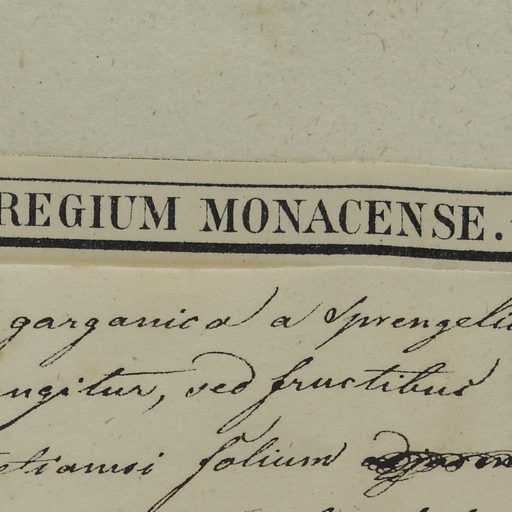 REGIUM MONACENSE.
garganica a Sprengelio
ngitur, sed fructibus
etiamsi folium